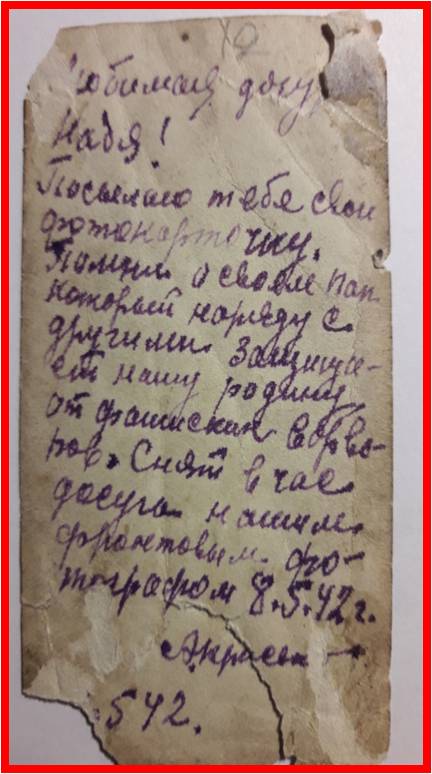 юбимая доч
Надя!
Посылаю тебе свою
фотокарточку.
Помни о своем пап
который наряду с
другими защища-
ет нашу родину
от фашиских варва-
ров. Снят в час
досуга нашим
фронтовым фо-
тографом 8.5.42 г.
.5 42.